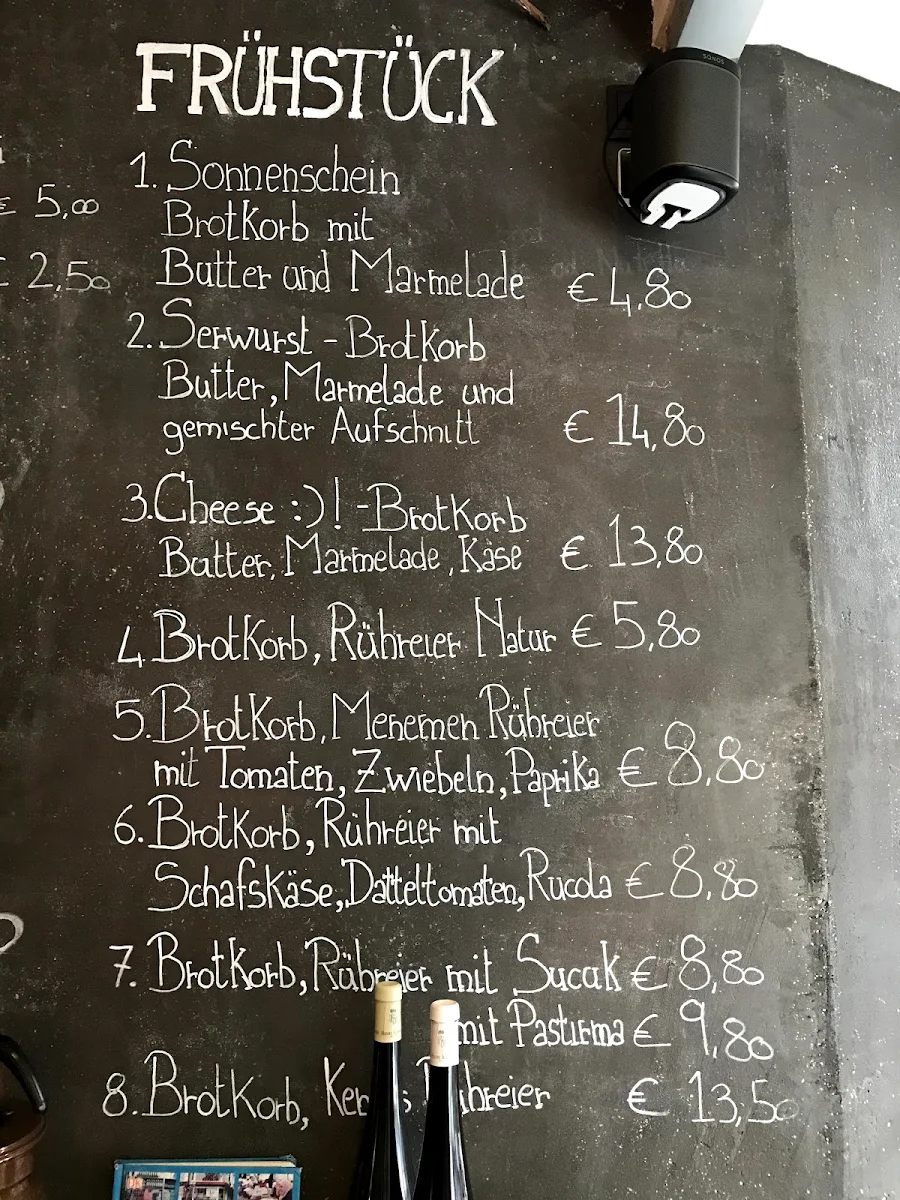 FRÜHSTÜCK
SONOS
€ 5,00
€ 2,50
1. Sonnenschein
Brotkorb mit
Butter und Marmelade € 4,80
2. Serwurst - Brotkorb
Butter, Marmelade und
gemischter Aufschnitt € 14,80
3. Cheese :)! - Brotkorb
Butter, Marmelade, Käse € 13,80
4 Brotkorb, Rühreier Natur € 5,80
5. Brotkorb, Menemen Rühreier
mit Tomaten, Zwiebeln, Paprika € 8,80
6. Brotkorb, Rühreier mit
Schafskäse, Datteltomaten, Rucola € 8,80
7. Brotkorb, Rühreier mit Sucuk € 8,80
mit Pastırma € 9,80
8. Brotkorb, € 13,50